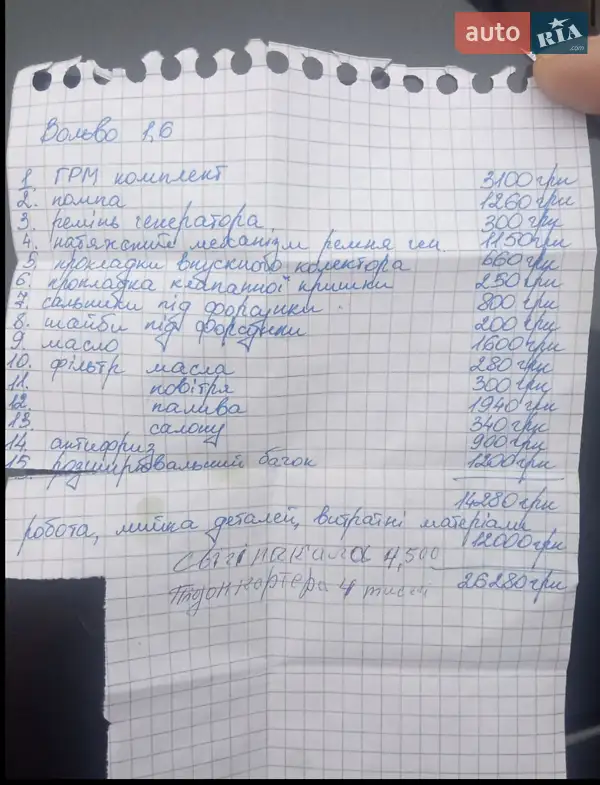 auto RIA .com
Вольво 1,6
1. ГРМ комплект 3100грн
2. помпа 1260грн
3. ремінь генератора 300грн
4. натяжний механізм ремня ген. 1150грн
5. прокладки впускного колектора 660грн
6. прокладка клапанної кришки 250грн
7. сальники під форсунки 800грн
8. шайби під форсунки 200грн
9. масло 1600грн
10. фільтр масла 280грн
11. повітря 300грн
12. палива 1940грн
13. салону 340грн
14. антифриз 900грн
15. розширювальний бачок 1200грн
14280грн
робота, мийка деталей, витратні матеріали 12000грн
Свічі накала 4,500
26280грн
Підон картера 4 тисячі